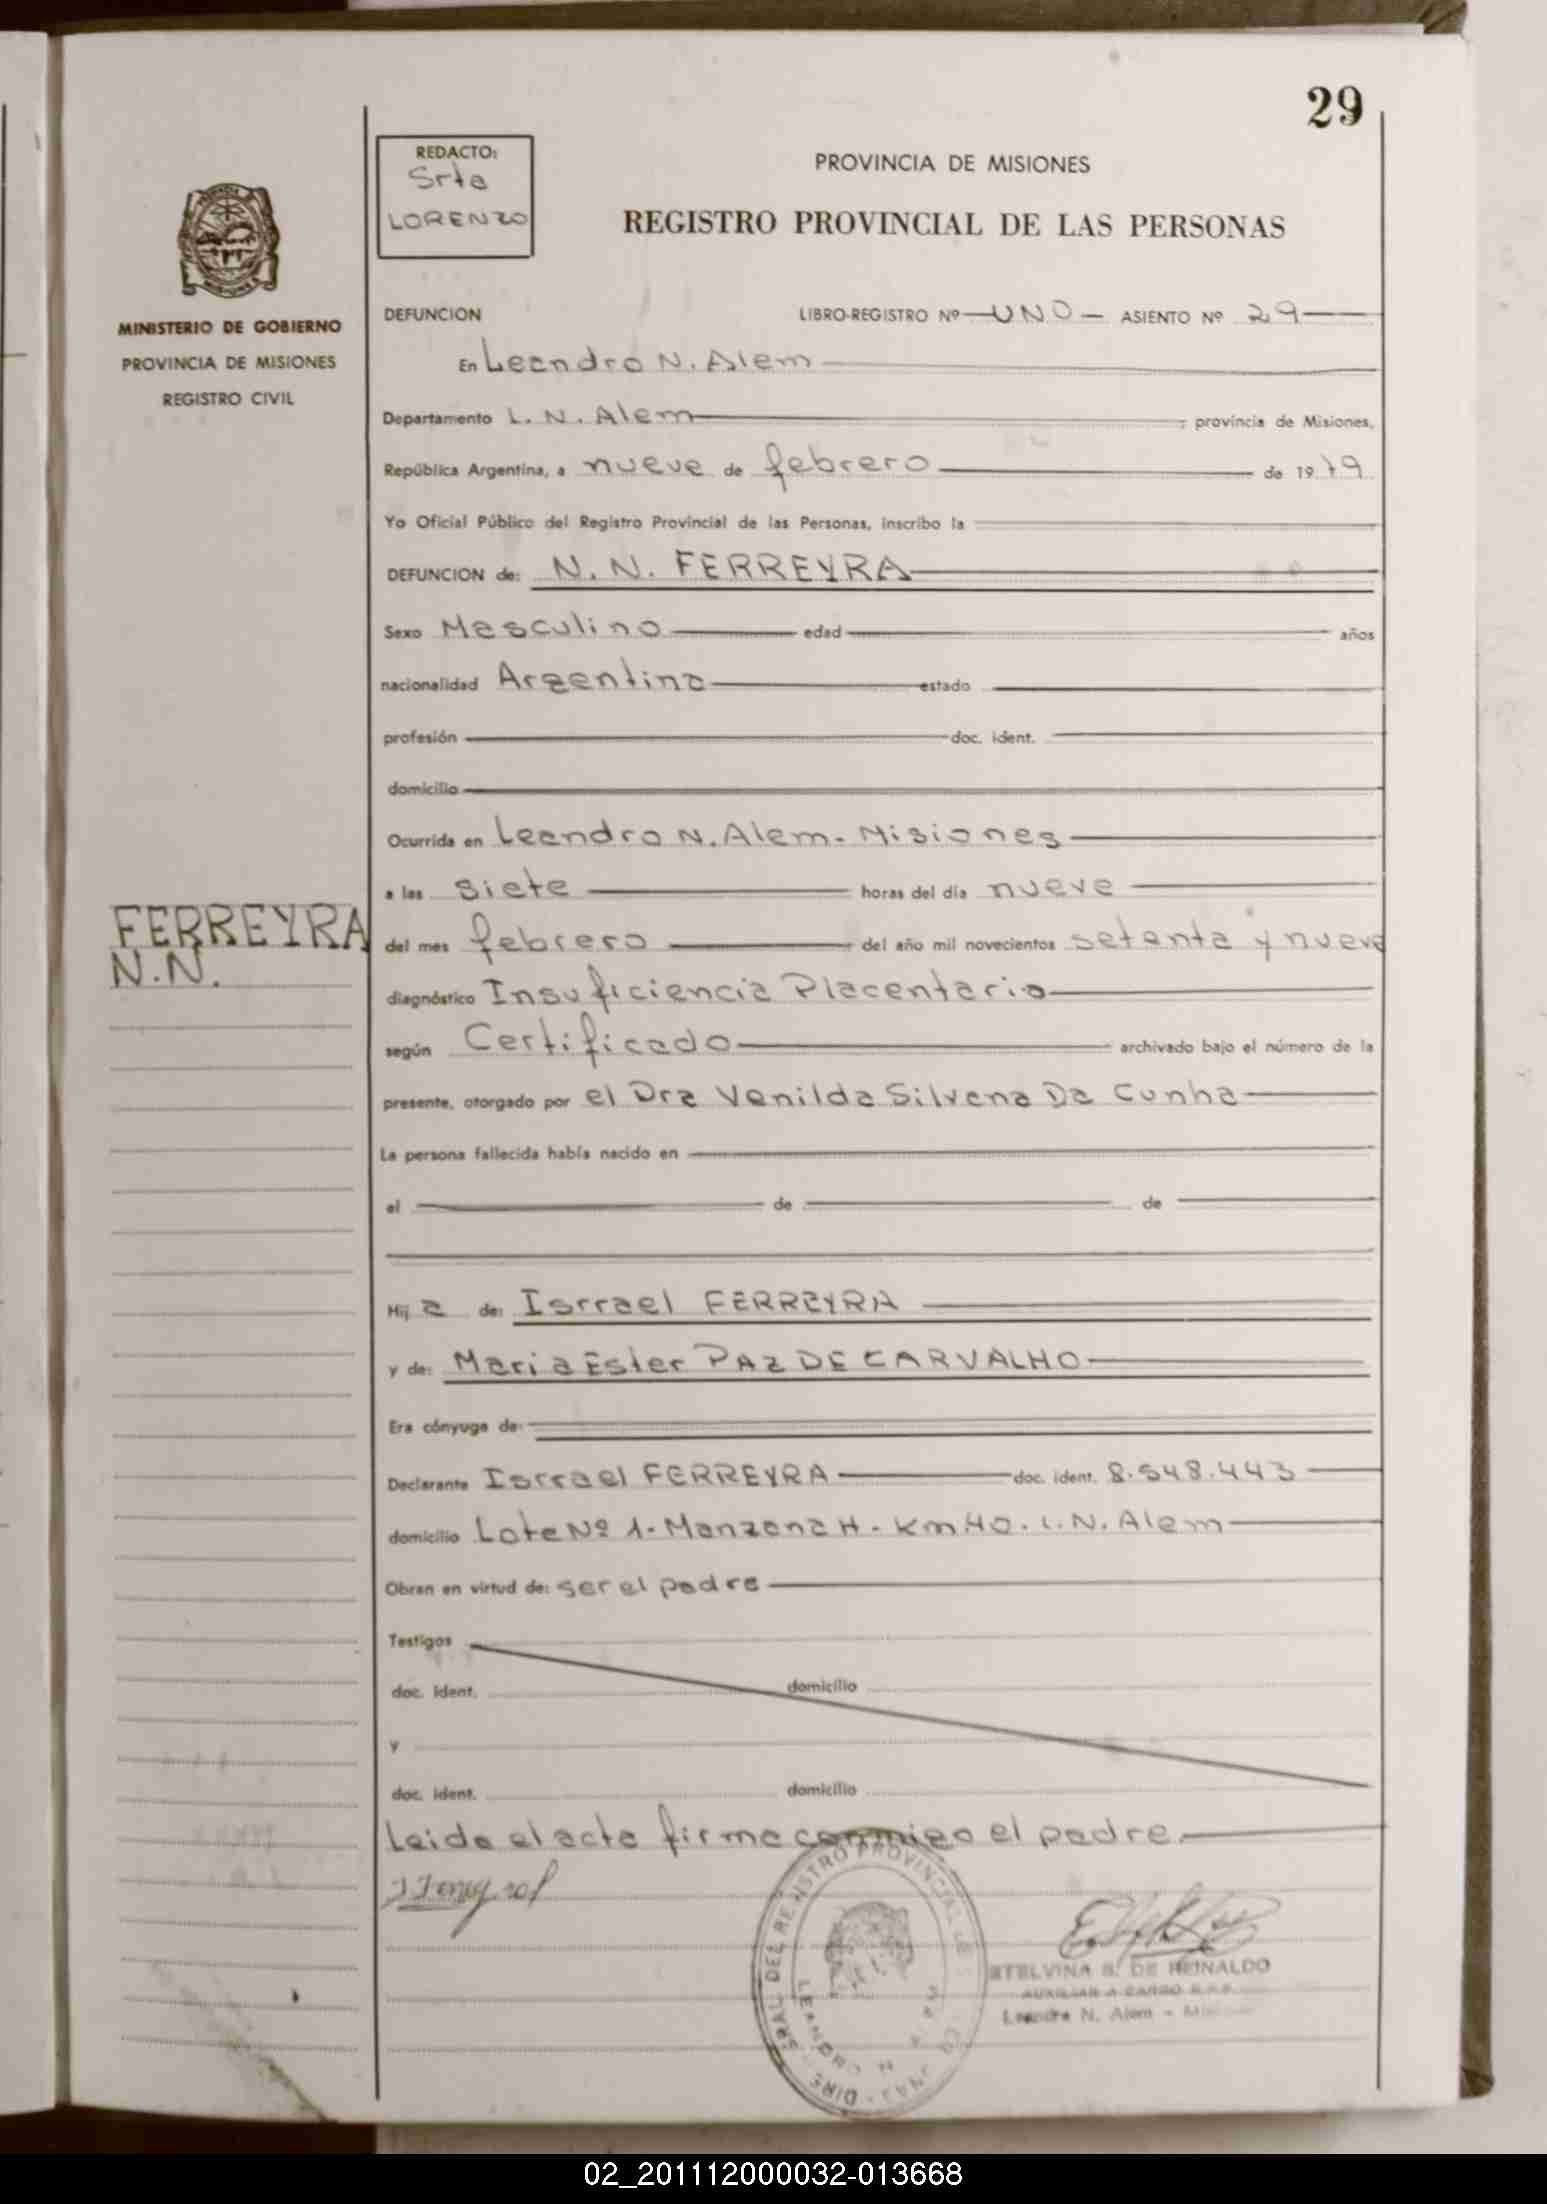 29
REDACTO:
Srta
LORENZO
PROVINCIA DE MISIONES
REGISTRO PROVINCIAL DE LAS PERSONAS
MINISTERIO DE GOBIERNO
PROVINCIA DE MISIONES
REGISTRO CIVIL
DEFUNCION LIBRO-REGISTRO Nº UNO ASIENTO Nº 29
En Leandro N. Alem
Departamento L. N. Alem , provincia de Misiones,
República Argentina, a nueve de febrero de 1979
Yo Oficial Público del Registro Provincial de las Personas, inscribo la
DEFUNCION de: N. N. FERREYRA
Sexo Masculino edad años
nacionalidad Argentina estado
profesión doc. ident.
domicilio
Ocurrida en Leandro N. Alem - Misiones
a las siete horas del día nueve
FERREYRA
N.N.
del mes febrero del año mil novecientos setenta y nueve
diagnóstico Insuficiencia Placentaria
según Certificado archivado bajo el número de la
presente, otorgado por el Dra Venilda Silvana Da Cunha
La persona fallecida había nacido en
el de de
Hij a de: Isrrael FERREYRA
y de: Maria Ester PAZ DE CARVALHO
Era cónyuge de:
Declarante Isrrael FERREYRA doc. ident. 8.548.443
domicilio Lote Nº 1 - Manzana H - Km 40 - L. N. Alem
Obran en virtud de: ser el padre
Testigos
doc. ident. domicilio
y
doc. ident. domicilio
Leida el acta firma conmigo el padre.
ETELVINA S. DE REINALDO
AUXILIAR A CARGO R.P.P.
Leandro N. Alem - Mis
02_201112000032-013668